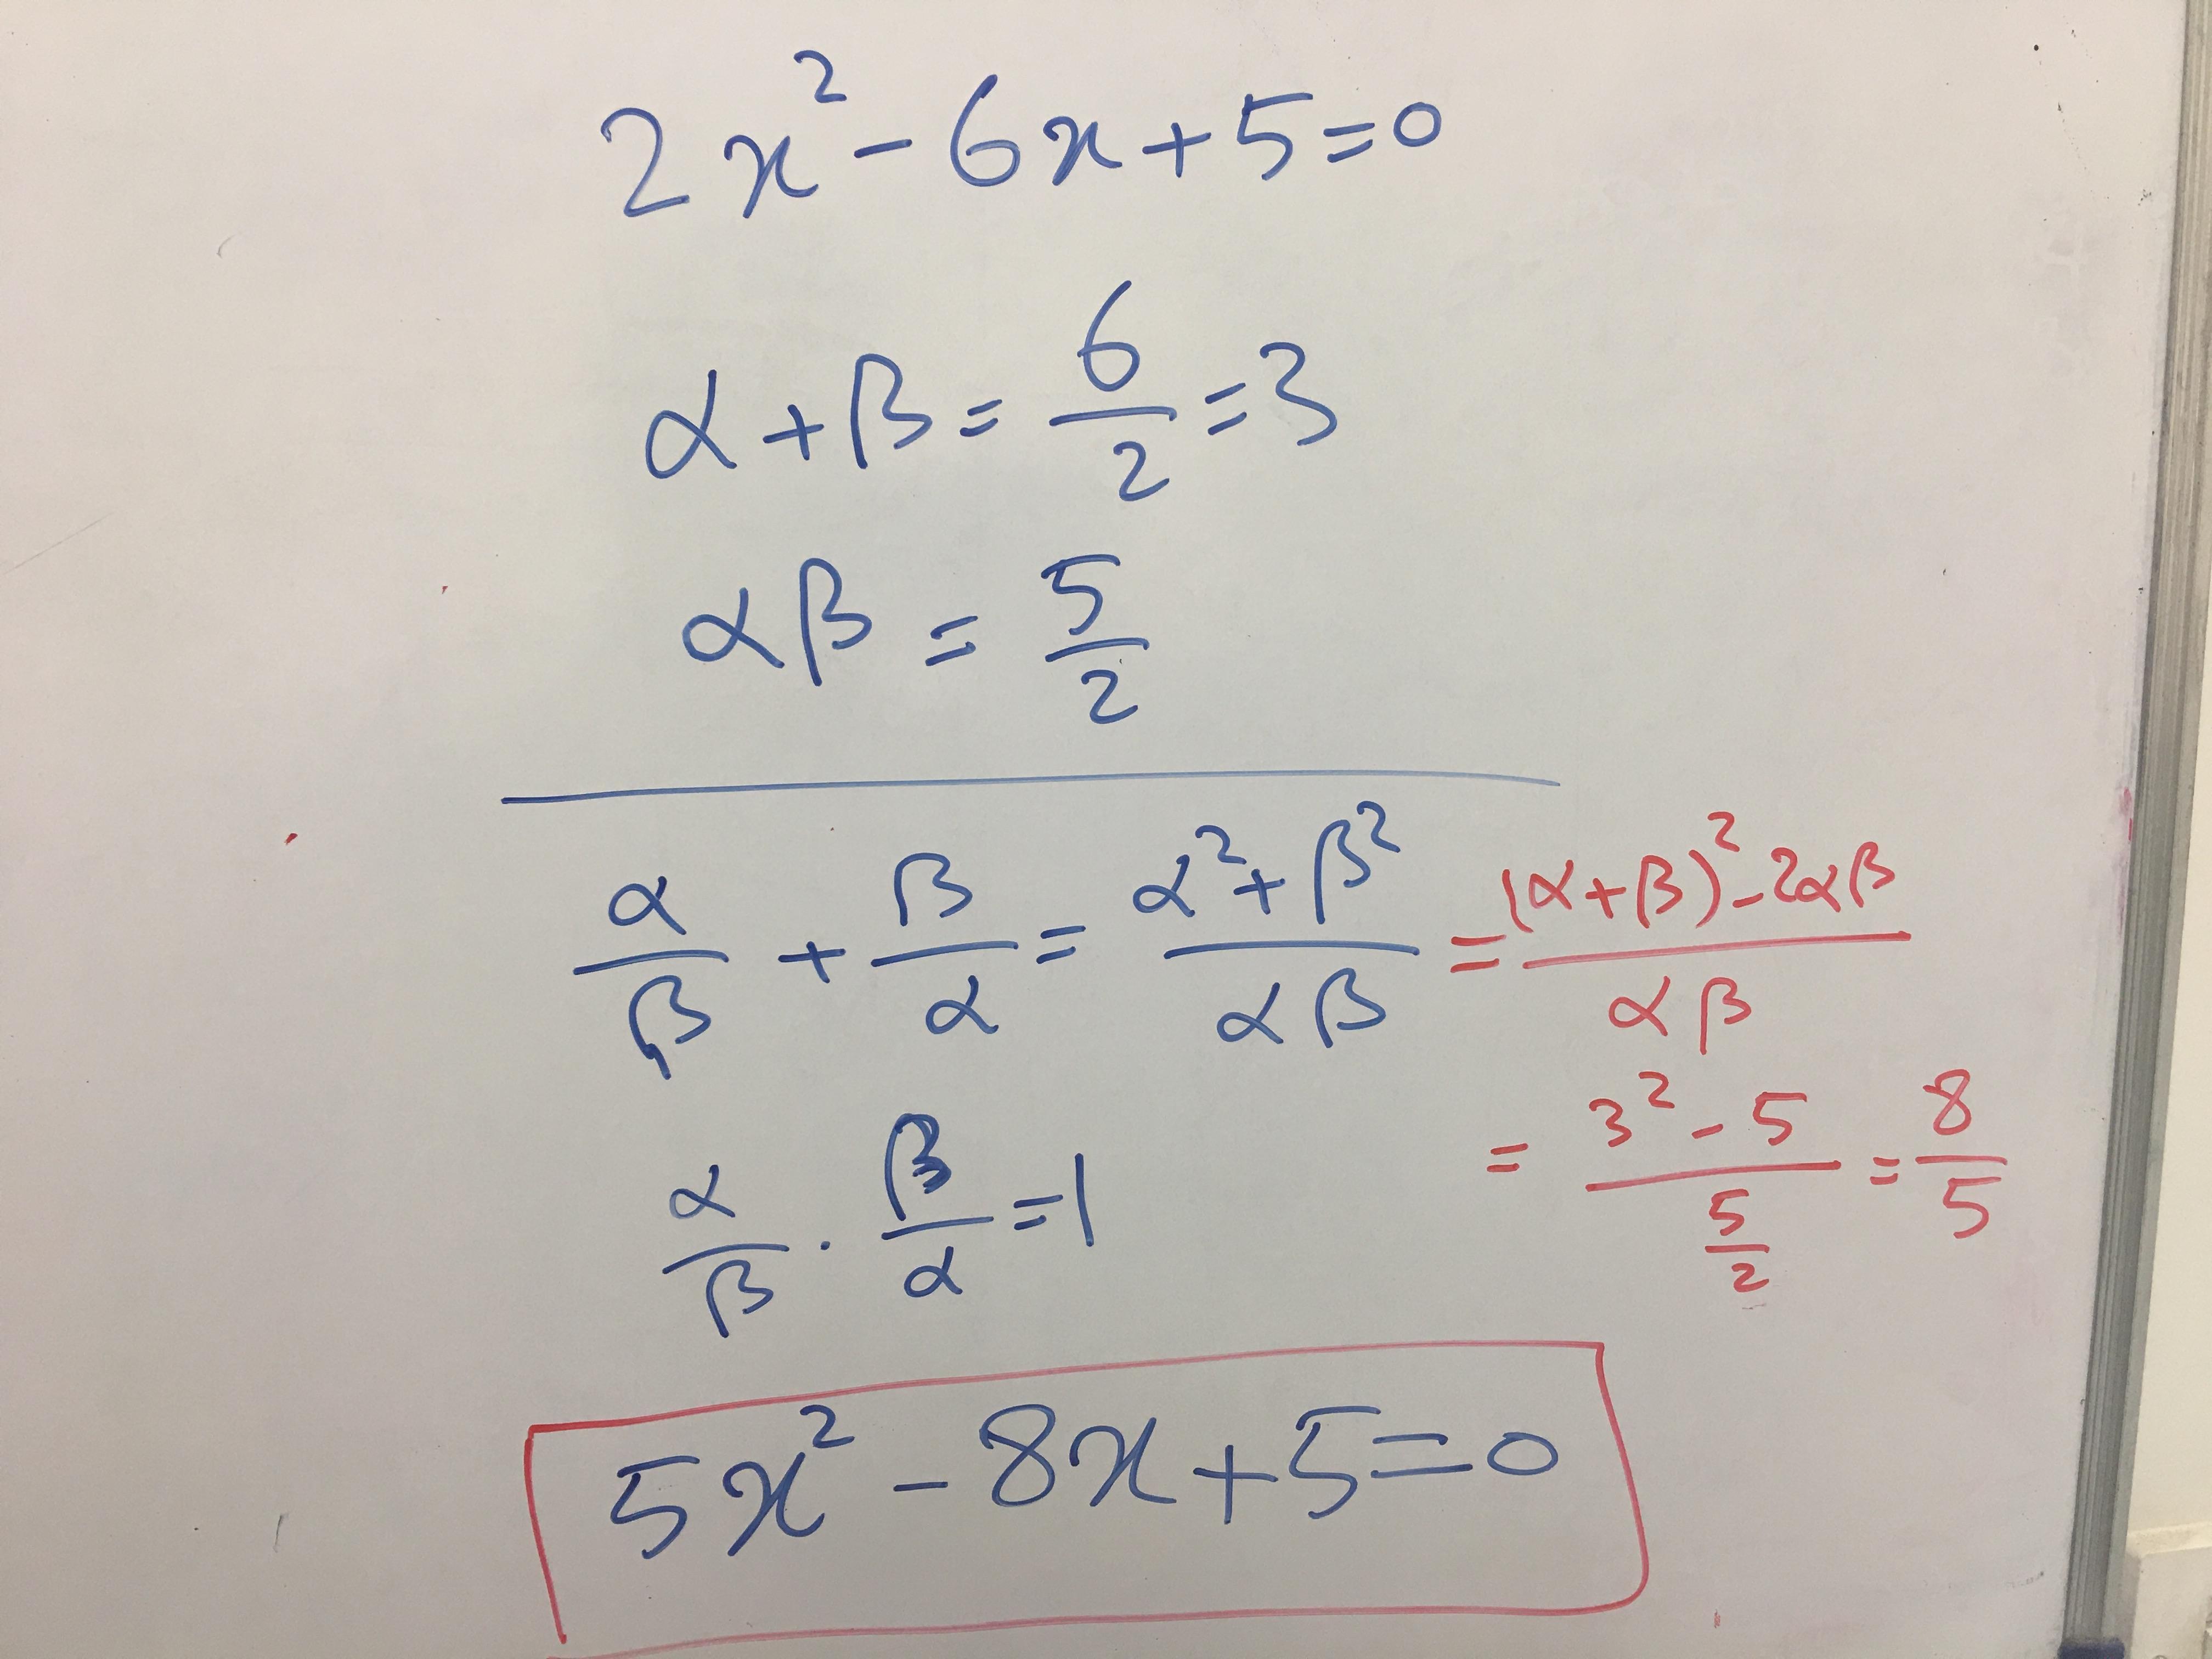 2x² - 6x + 5 = 0
α + β = 6/2 = 3
αβ = 5/2
α/β + β/α = (α² + β²)/(αβ) = ((α + β)² - 2αβ)/(αβ)
= (3² - 5)/(5/2) = 8/5
α/β · β/α = 1
5x² - 8x + 5 = 0